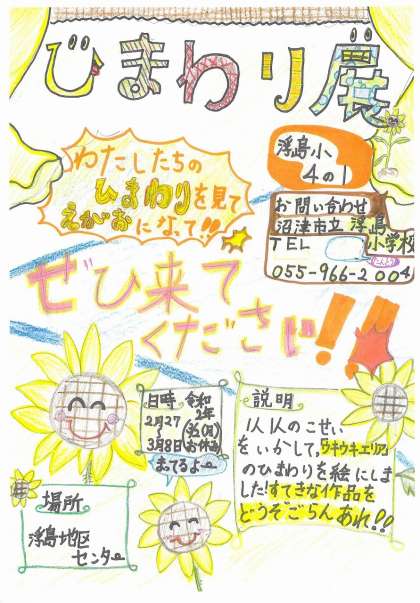 ひまわり展
わたしたちの
ひまわりを見て
えがおになって!!
浮島小
4の1
お問い合わせ
沼津市立 浮島
小学校
TEL
055-966-2004
ぜひ来て
ください!!
日時 令和
2年
2月27
3月8日
(月)
お休み
まってるよ
説明
1人1人のこせい
をいかして,ウキウキエリア
のひまわりを絵にしま
した!すてきな作品を
どうぞごらんあれ!!
場所
浮島地区
センター